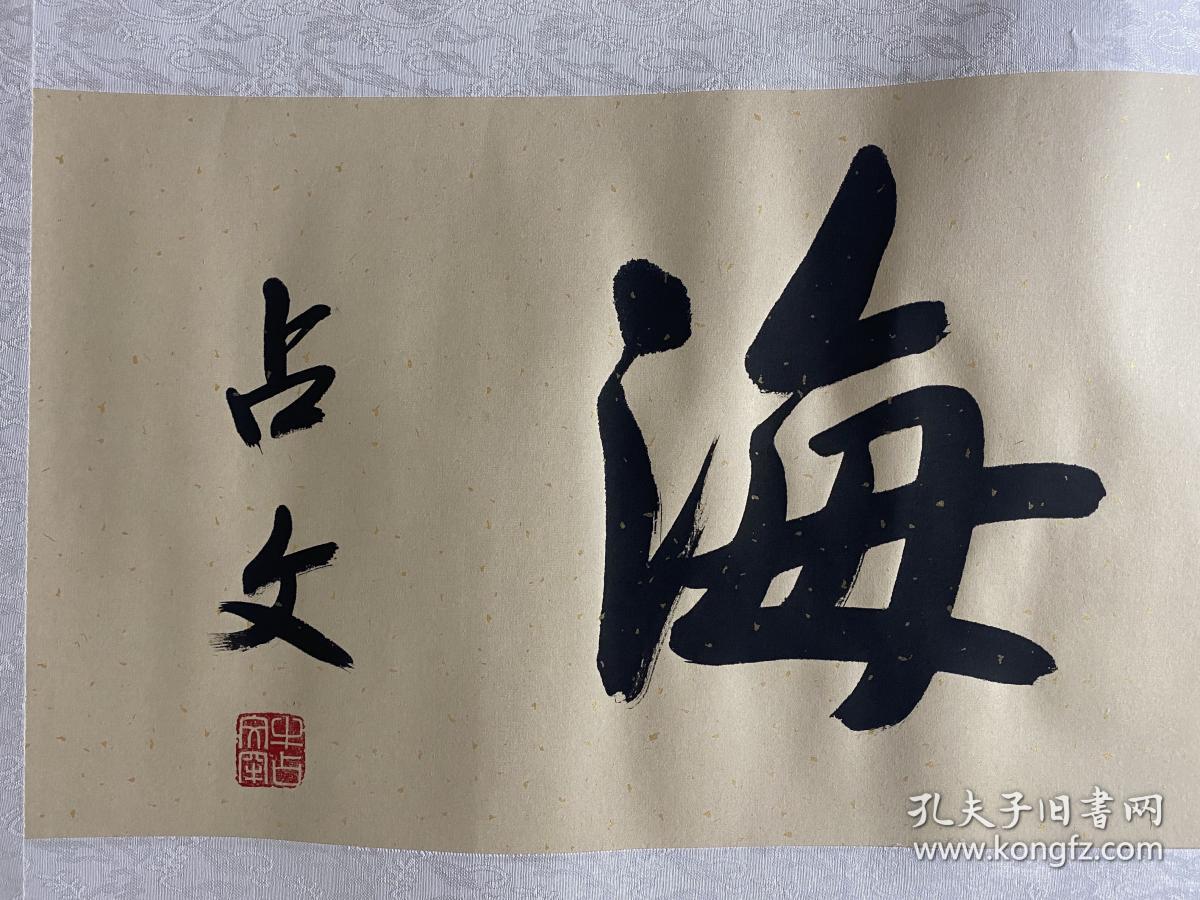 海
占文
牛占
文印
孔夫子旧书网
www.kongfz.com